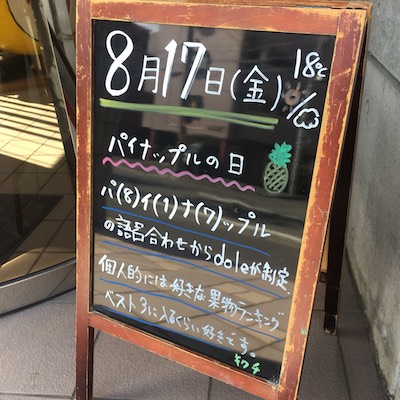 8月17日(金) 18℃
パイナップルの日
パ(8)イ(1)ナ(7)ップル
の語呂合わせからdoleが制定
個人的には好きな果物ランキング
ベスト3に入るくらい好きです。
キクチ